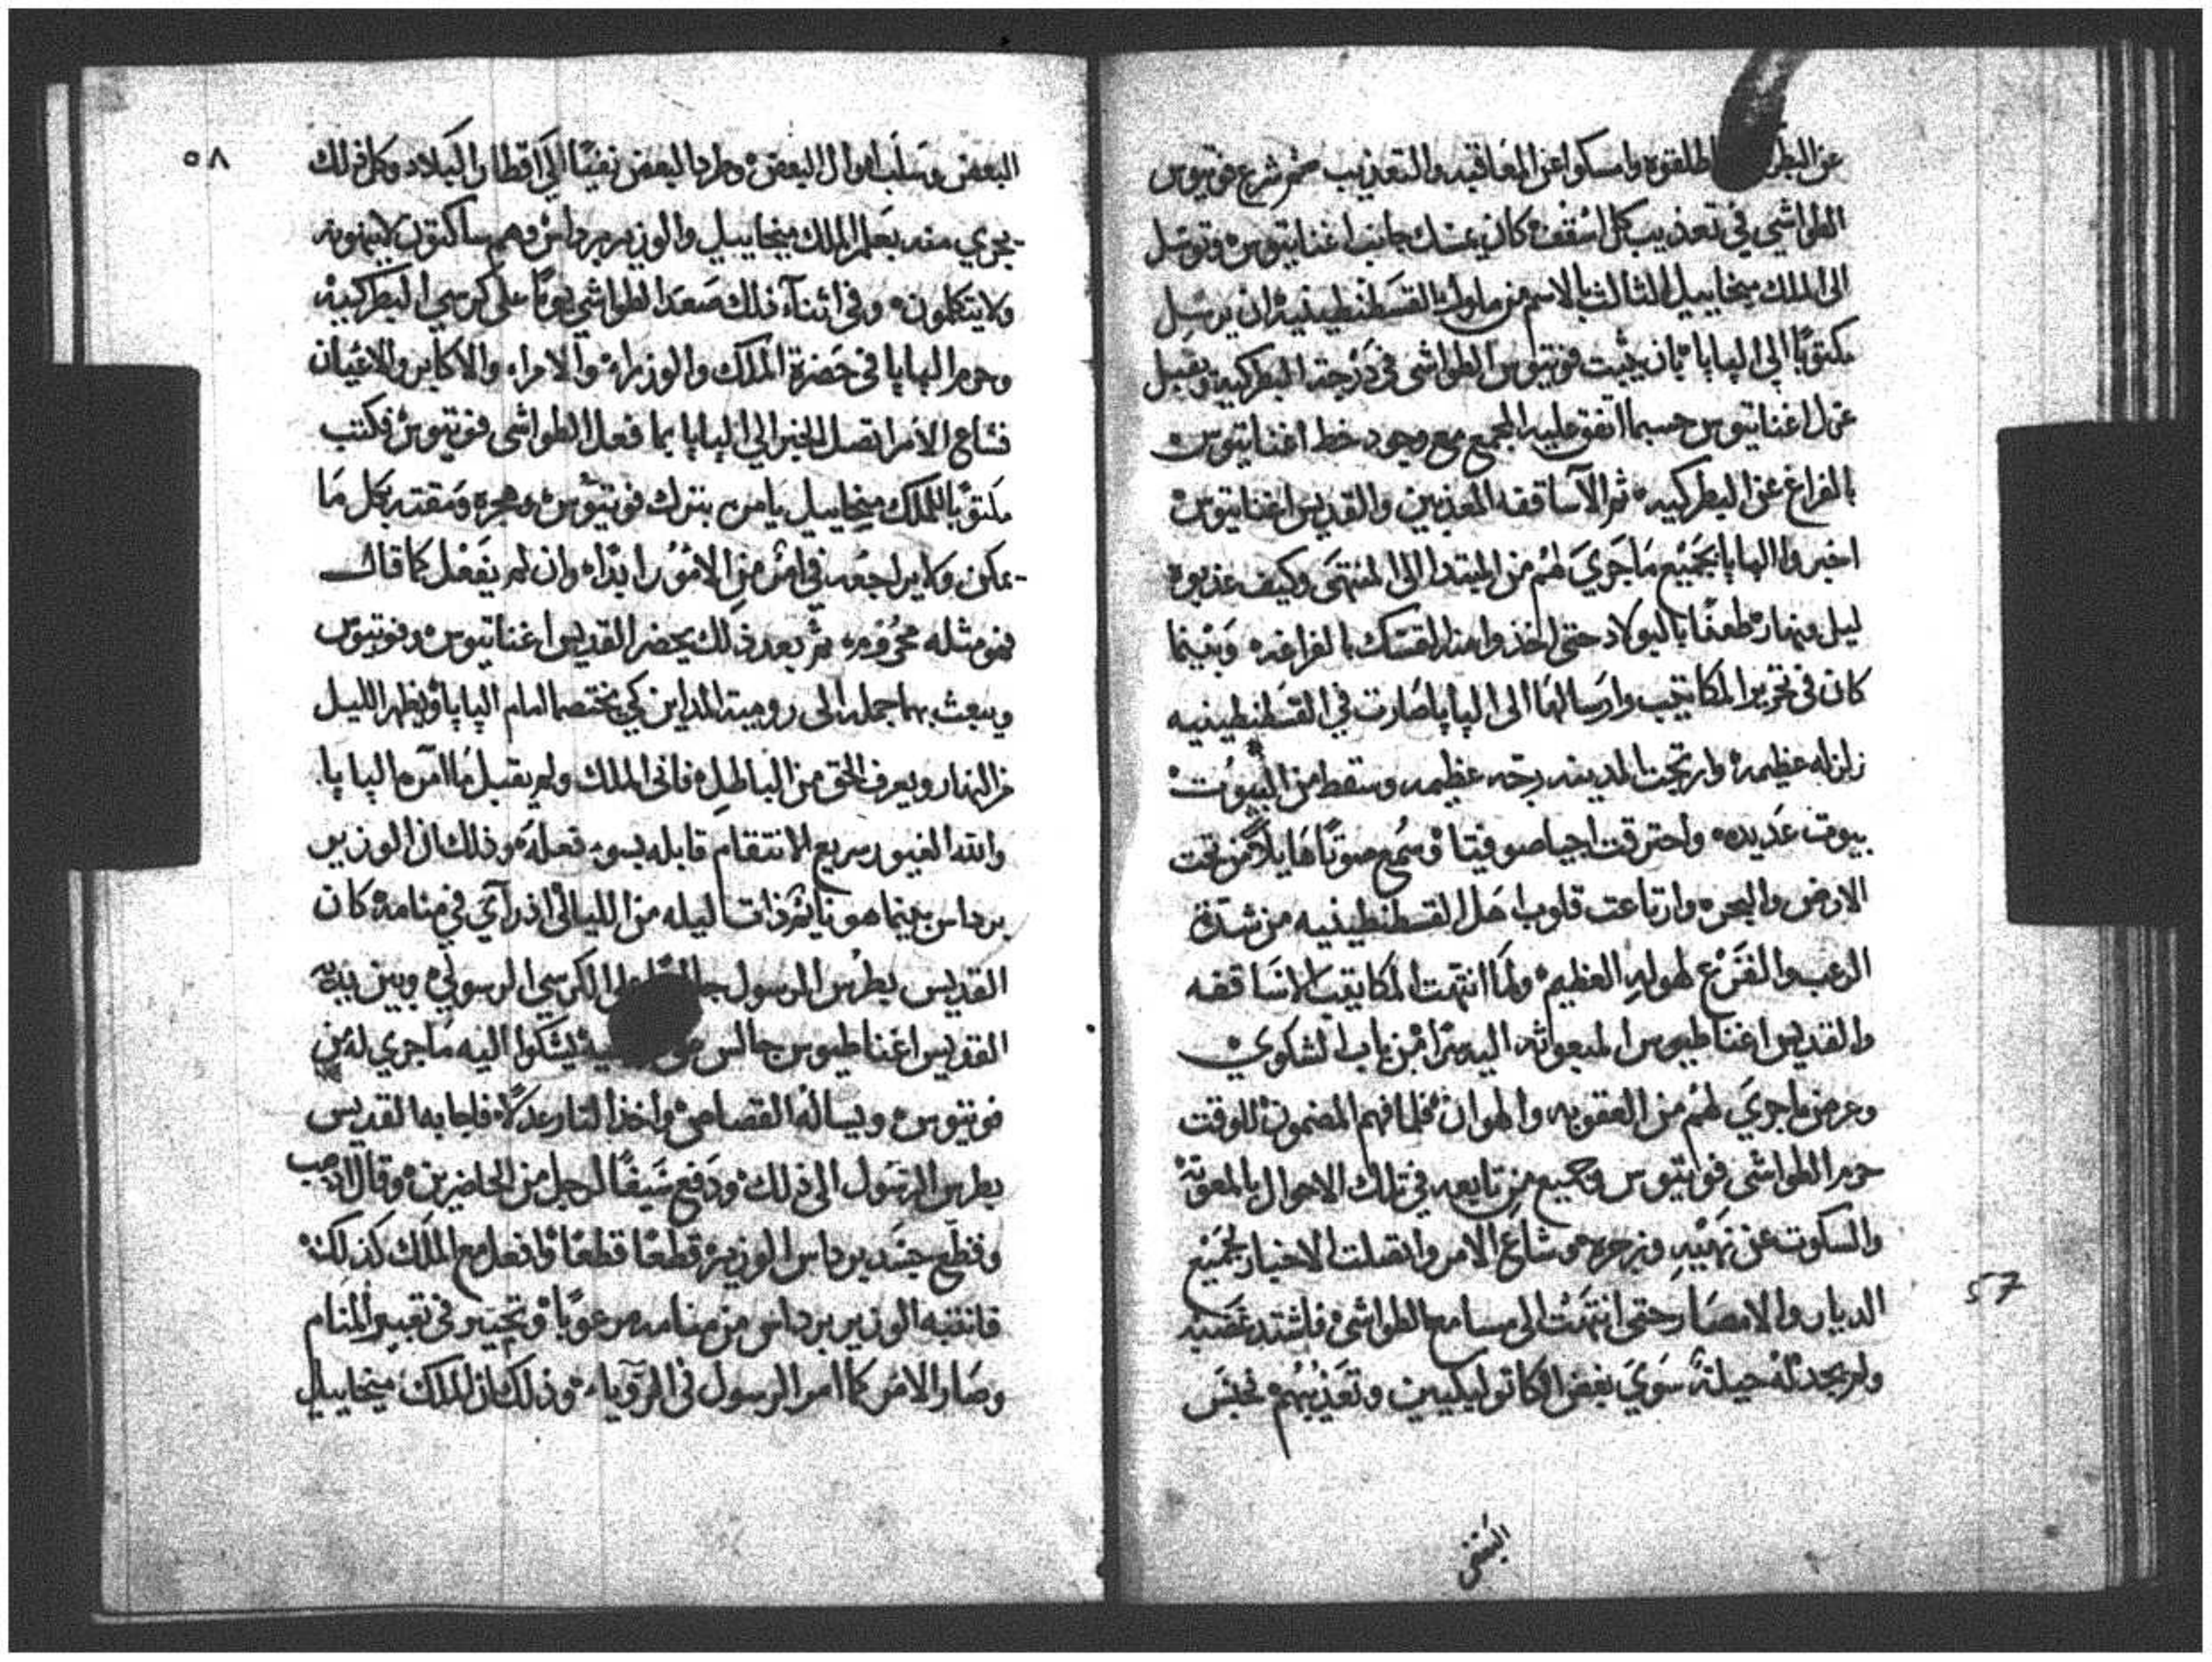 عن البطر اطلقوه وامسكوا عن المعاقبه والتعذيب ثم شرع فوتيوس
الطواشي في تعذيب كل اسقف كان يمسك جانب اغناتيوس وتوسل
الى الملك ميخاييل الثالث بالاسم من ملوك القسطنطينية ان يرسل
مكتوبًا الى البابا بان يثبت فوتيوس الطواشي في درجة البطركية ويقبل
عزل اغناتيوس حسبما اتفق عليه المجمع مع وجود خط اغناتيوس
بالفراغ عن البطركيه ثم الآساقفه المعذبين والقديس اغناتيوس
اخبروا البابا بجَميْع مَا جَرَيَ لهُم من المبتدا الى المنتهَى وكيف عذبوه
ليل ونهار طعنًا بالبولاد حتى اخذوا منه التمسك بالفراغه وَبينما
كان في تحرير المكاتيب وارسالهَا الى البابا صَارت في القسَطنطينيه
زلزله عظيمه وارتجت المدينه رجّه عظيمه وسقط من البيُوت
بيوت عَديده واحترقت اجيا صوفيّا وسُمع صوتًا هَايلاً من تحت
الارض والبحر وارتاعت قلوب اهَل القسطنطينيه من شدة
الرعب والفَزَع لهوله العظيم ولمَا انتهت المكاتيب الاسَاقفه
والقديس اغناطيوس المبعوثه اليه سرًا من باب الشكوي
وعرض ما جري لهُم من العقوبه والهوان فلما فهم المضمون للوقت
حرم الطواشي فوتيوس وجميع من تابعه في تلك الاحوال بالمعونة
والسكوت عن نهيْهِ وزجره وشاعَ الامر واتصلت الاخبار لجَميْع
الديار والامصَار حتى انتهَتْ الى مسامع الطواشي فاشتد غضبه
ولم يجد لهُ حيلةً سَوَي بغض الكاتوليكيين وتعَذيبهُم فحبسَ
البعض
57
٥٨
البعض وسَلَب اموال البعض وطرد البعض نفيًا الَى اقطار البلاد وكل ذلك
يجري منه بَعلم الملك ميخاييل والوزير برداس وهم ساكتون لاينهونه
ولا يتكلمون وفي اثنآء ذلك صَعدَ الطواشي يومًا على كرسي البطركية
وحرم البابا في حَضرة الملك والوزراء والامراء والاكابر والاعيان
فشاع الامر اتصل الخبر الي البابا بما فعل الطواشي فوتيوس فكتب
مَكتوبًا للملك ميخاييل يامره بترك فوتيوس وهجره ومَقته بكل مَا
يمكن ولا يراجعه في امْر من الامُوْر ابدًا وان لم يَفعَل كما قال
فهو مثله محرُوْم ثم بعد ذلك يحضر القديس اغناتيوس وفوتيوس
ويبعث بهما جمله الى رومية المداين كي يختصما امام البابا ويظهر الليل
من النهار ويعرف الحق من الباطل فابى الملك ولم يقبل مَا امر به البابا
والله الغيور سريع الانتقام قابله بسوء فعلهَ وذلك ان الوزير
برداس بينما هو نايم ذات ليله من الليالي اذ رآي في منامه كان
القديس بطرْس الرسول جالسًا على الكرسي الرسولي وبين يديه
القديس اغناطيوس جالس يشكوا اليه مَا جري له من
فوتيوس ويساله القصاص واخذ الثار عدلاً فاجابه القديس
بطرس الرسَول الى ذلك ودَفع سَيفًا لرجل من الحاضرين وقال اذهب
وقطّع جسَد برداس الوزير قطعًا قطعًا وافعل مع الملك كذلك
فانتبه الوزير برداس من منامه مرعوبًا وتحيّر في تعبير المنام
وصَار الامْر كما امر الرسول في الرّوياء وذلك ان الملك ميخاييل